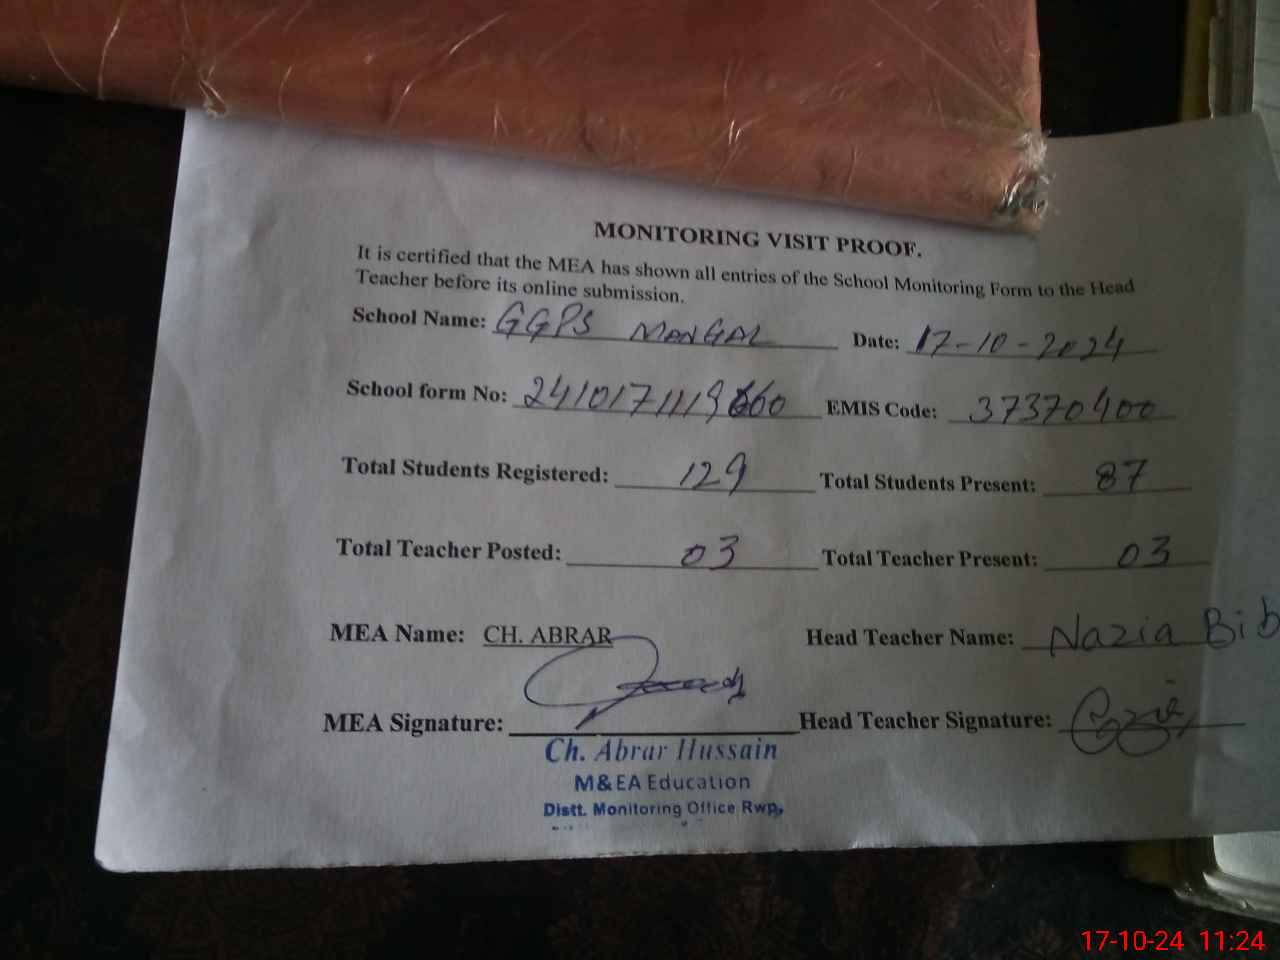 MONITORING VISIT PROOF.
It is certified that the MEA has shown all entries of the School Monitoring Form to the Head
Teacher before its online submission.
School Name: GGPS MANGAL Date: 17-10-2024
School form No: 2410171119660 EMIS Code: 37370400
Total Students Registered: 129 Total Students Present: 87
Total Teacher Posted: 03 Total Teacher Present: 03
MEA Name: CH. ABRAR Head Teacher Name: Nazia Bib
MEA Signature: Head Teacher Signature:
Ch. Abrar Hussain
M&EA Education
Distt. Monitoring Office Rwp,
17-10-24 11:24